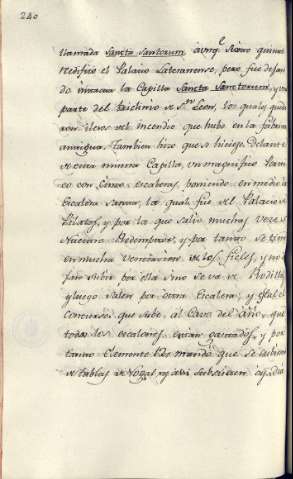 240
llamada Sancta Santorum aunq.e Sixto quinto
reedifico el Palacio Lateranense, pero fue dejan
do intacta la Capilla Sancta Sanctorum, y una
parte del Triclinio de S.n Leon, los quales queda
ron libres del incendio que hubo en la fabrica
antigua. Tambien hizo que se hiciese delante
de esta misma Capilla, un magnifico Porti
co con cinco escaleras, poniendo en medio la
Escalera Santa, la qual fue del Palacio de
Pilatos, y por la que salio muchas veces
Nuestro Redemptor, y por tanto se tiene
en mucha veneracion de los fieles, y no
se sube por ella sino se va de Rodillas
y luego salen por otra Escalera, y es tal el
concurso que sube, al cavo del año, que
todos los escalones estan gastados, y por
tanto Clemente mandó que se cubrieran
de tablas de Nogal, y asi subsisten